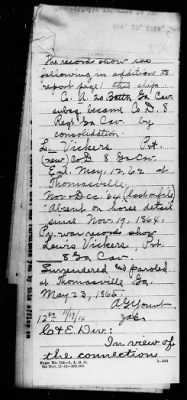 The records show as
following in addition to
report page 1 this slip:
Co. A 20 Battn Ga Cav.
subsq. became Co D. 8
Regt. Ga Cav. by
consolidation.
L. Vickers Pvt.
(new) Co D 8 Ga Cav.
Enl. May, 12, 62 at
Thomasville,
Nov & Dec. 64 (last on file)
"Absent on horse detail
since Nov. 19, 1864.
Pr. war records show
Lewis Vickers, Pvt.
8 Ga Cav.
Surrendered and paroled
at Thomasville Ga.
May 23, 1865.
C & E Div:
In view of
the connection